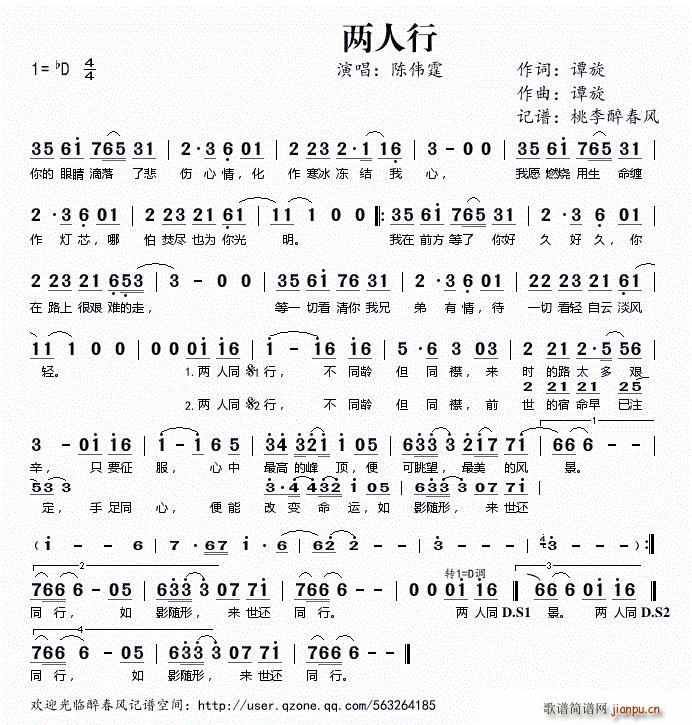 两人行
1=♭D 4/4 演唱：陈伟霆 作词：谭旋
作曲：谭旋
记谱：桃李醉春风
35 61 765 31 | 2·3 6 01 | 2 23 2·1 16 | 3 - 0 0 | 35 61 765 31 |
你的眼睛滴落 了悲 伤心情，化 作寒冰冻结我 心， 我愿燃烧用生 命缠
2·3 6 01 | 2 23 21 61 | 11 1 0 0 ‖: 35 61 765 31 | 2·3 6 01 |
作 灯芯，哪 怕焚尽也为你光 明。 我在前方等了 你好 久好久，你
2 23 21 653 | 3 - 0 0 | 35 61 76 31 | 2·3 6 01 | 22 23 21 61 |
在路上很艰难的走， 等一切看清你我兄 弟有情，待 一切看轻自云淡风
11 1 0 0 | 0 0 01 16 | 1 - 16 16 | 5·6 3 03 | 2 21 2·5 56 |
轻。 1.两人同𝄋1行， 不同龄 但同襟，来 时的路太多艰
2 21 21 25
2.两人同𝄋2行， 不同龄 但同襟，前 世的宿命早 已注
3 - 01 16 | 1 - 16 5 | 34 321 1 05 | 6333 217 71 | 66 6 - |
辛， 只要征 服， 心中 最高的峰 顶，便 可眺望，最美的风 景。
53 3 3·4 432 1 05 | 6333 07 71
定，手足同 心，便能 改变命运，如 影随形，来世还
（1 - - 6 | 7·67 1·6 | 62 2 - - | 3 - - - | 43 - - - ）:‖
766 6 - 05 | 6333 07 71 | 766 6 - - | 0 0 01 16 ‖ 66 6 01 16 ‖
转1=D调
同行， 如 影随形，来世还 同行。 两人同D.S1 景。 两人同D.S2
766 6 - 05 | 6333 07 71 | 766 6 - - ‖
同行， 如 影随形，来世还 同行。
欢迎光临醉春风记谱空间：http://user.qzone.qq.com/563264185
歌谱简谱网
jianpu.cn